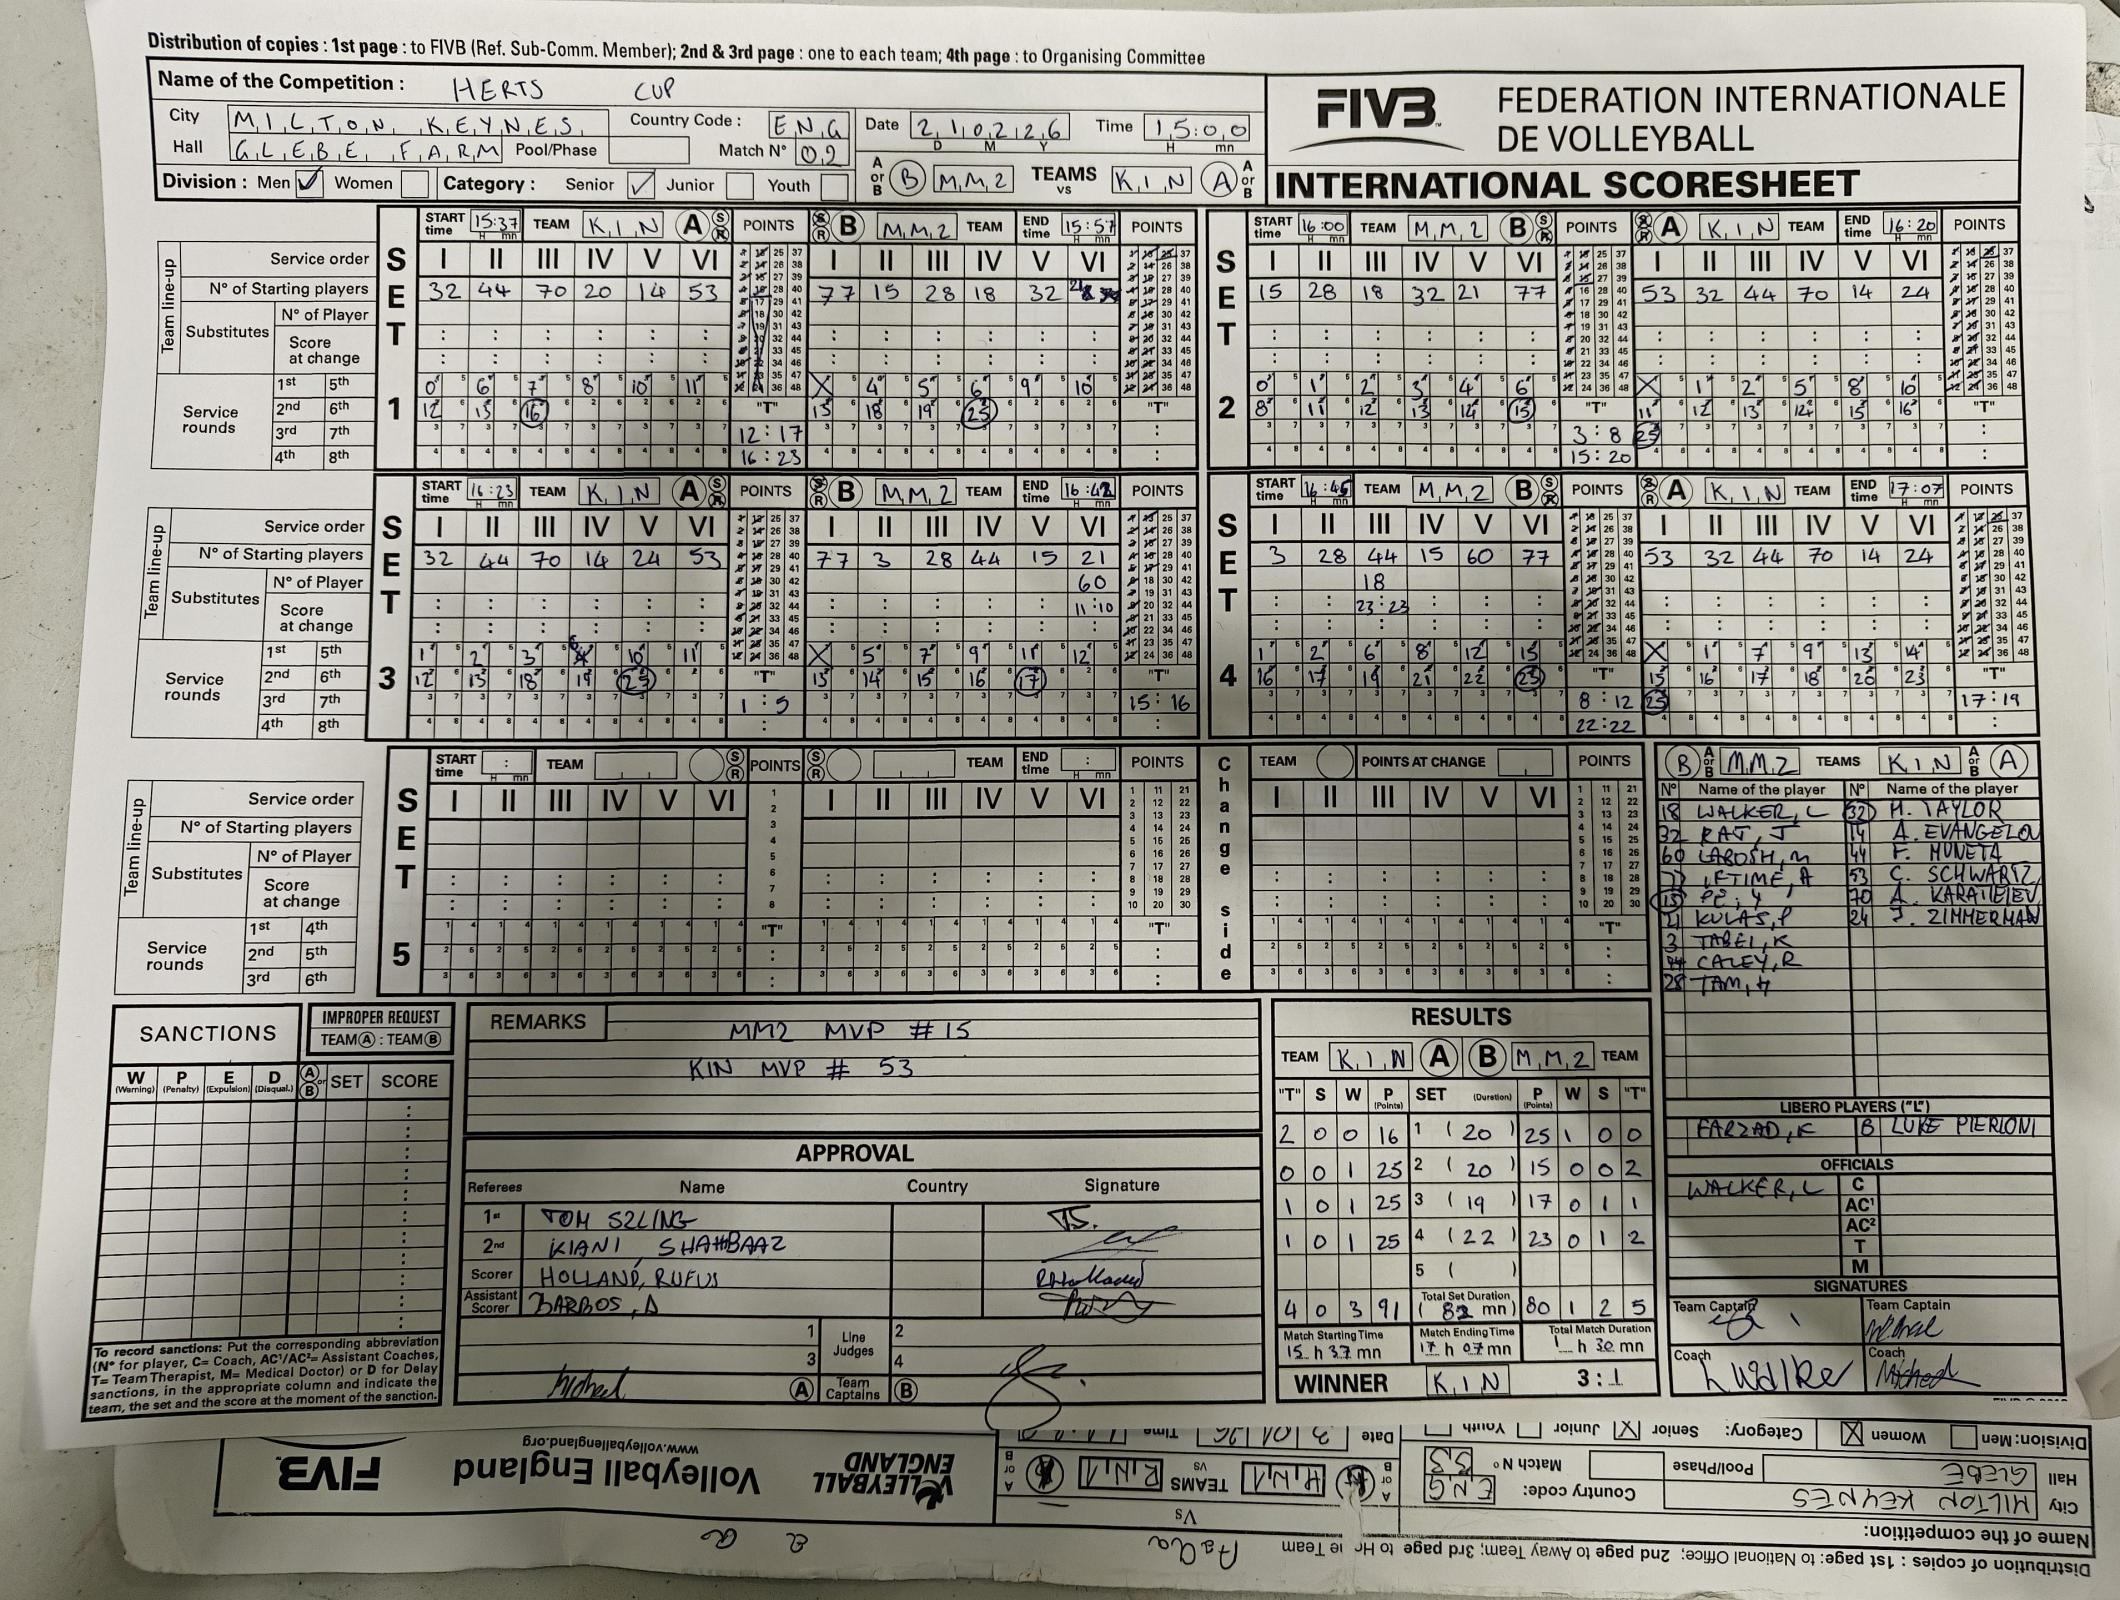 Distribution of copies : 1st page : to FIVB (Ref. Sub-Comm. Member); 2nd & 3rd page : one to each team; 4th page : to Organising Committee
Name of the Competition : HERTS CUP
City MILTON KEYNES Country Code : ENG Date 21 02 26 Time 15:00
Hall GLEBE FARM Pool/Phase Match N° 02
A or B B MM2 TEAMS vs KIN A A or B
Division : Men Women Category : Senior Junior Youth
FIVB FEDERATION INTERNATIONALE DE VOLLEYBALL
INTERNATIONAL SCORESHEET
SET 1
START time 15:37 TEAM KIN A POINTS B MM2 TEAM END time 15:57 POINTS
Service order I II III IV V VI I II III IV V VI
N° of Starting players 32 44 70 20 14 53 77 15 28 18 32 21
Substitutes N° of Player
Score at change
Service rounds
1st 5th 0 6 7 8 10 11 X 4 5 6 9 10
2nd 6th 12 15 16 13 18 19 25
3rd 7th
4th 8th
"T" 12 : 17
16 : 23
SET 2
START time 16:00 TEAM MM2 B POINTS A KIN TEAM END time 16:20 POINTS
I II III IV V VI I II III IV V VI
15 28 18 32 21 77 53 32 44 70 14 24
0 1 2 3 4 6 X 1 2 5 8 10
8 11 12 13 14 15 11 12 13 14 15 16
25
"T" 3 : 8
15 : 20
SET 3
START time 16:23 TEAM KIN A POINTS B MM2 TEAM END time 16:42 POINTS
Service order I II III IV V VI I II III IV V VI
N° of Starting players 32 44 70 14 24 53 77 3 28 44 15 21
Substitutes N° of Player 60
Score at change 11:10
Service rounds
1st 5th 1 2 3 10 11 X 5 7 9 11 12
2nd 6th 12 13 18 19 25 13 14 15 16 17
3rd 7th
4th 8th
"T" 1 : 5
"T" 15 : 16
SET 4
START time 16:45 TEAM MM2 B POINTS A KIN TEAM END time 17:07 POINTS
I II III IV V VI I II III IV V VI
3 28 44 15 60 77 53 32 44 70 14 24
18
23:23
1 2 6 8 12 15 X 1 7 9 13 14
16 17 19 21 22 23 15 16 17 18 20 23
25
"T" 8 : 12
22:22
"T" 17:19
SET 5
START time TEAM POINTS TEAM END time POINTS
Change side TEAM POINTS AT CHANGE POINTS
Service order I II III IV V VI I II III IV V VI I II III IV V VI
N° of Starting players
Team line-up
Substitutes N° of Player
Score at change
Service rounds
1st 4th
2nd 5th
3rd 6th
B A or B MM2 TEAMS KIN A or B A
N° Name of the player N° Name of the player
18 WALKER, L 32 M. TAYLOR
32 RAJ, J 14 A. EVANGELOU
60 LABOSH, M 44 F. MUNETA
77 IFTIME, A 53 C. SCHWARTZ
15 PE, Y 70
21 KULAS, P 24 J. ZIMMERMAN
3 TABEI, K
44 CALEY, R
28 TAM, H
LIBERO PLAYERS ("L")
FARZAD, K 8 LUKE PIERLONI
OFFICIALS
WALKER, L C
AC¹
AC²
T
M
SIGNATURES
Team Captain Team Captain
Coach Coach
L Walker
SANCTIONS
IMPROPER REQUEST
TEAM A : TEAM B
W (Warning) P (Penalty) E (Expulsion) D (Disqual.) A or B SET SCORE
To record sanctions: Put the corresponding abbreviation
(N° for player, C= Coach, AC¹/AC²= Assistant Coaches,
T= Team Therapist, M= Medical Doctor) or D for Delay
sanctions, in the appropriate column and indicate the
team, the set and the score at the moment of the sanction.
REMARKS
MM2 MVP #15
KIN MVP # 53
APPROVAL
Referees Name Country Signature
1st TOM SZLING TS.
2nd KIANI, SHAHBAAZ
Scorer HOLLAND, RUFUS
Assistant Scorer BARBOS, A
1 Line Judges 2
3 4
A Team Captains B
RESULTS
TEAM KIN A B MM2 TEAM
"T" S W P (Points) SET (Duration) P (Points) W S "T"
2 0 0 16 1 (20) 25 1 0 0
0 0 1 25 2 (20) 15 0 0 2
1 0 1 25 3 (19) 17 0 1 1
1 0 1 25 4 (22) 23 0 1 2
5 ( )
Total Set Duration
4 0 3 91 (82 mn) 80 1 2 5
Match Starting Time Match Ending Time Total Match Duration
15 h 37 mn 17 h 07 mn 1 h 30 mn
WINNER KIN 3:1
Distribution of copies : 1st page: to National Office; 2nd page: to Away Team; 3rd page to
Name of the competition:
City MILTON KEYNES Country code: ENG
Hall GLEBE Pool/Phase Match N°
Division: Men Women Category: Senior Junior Youth Date Time
TEAMS vs A or B
VOLLEYBALL ENGLAND
Volleyball England
www.volleyballengland.org
FIVB